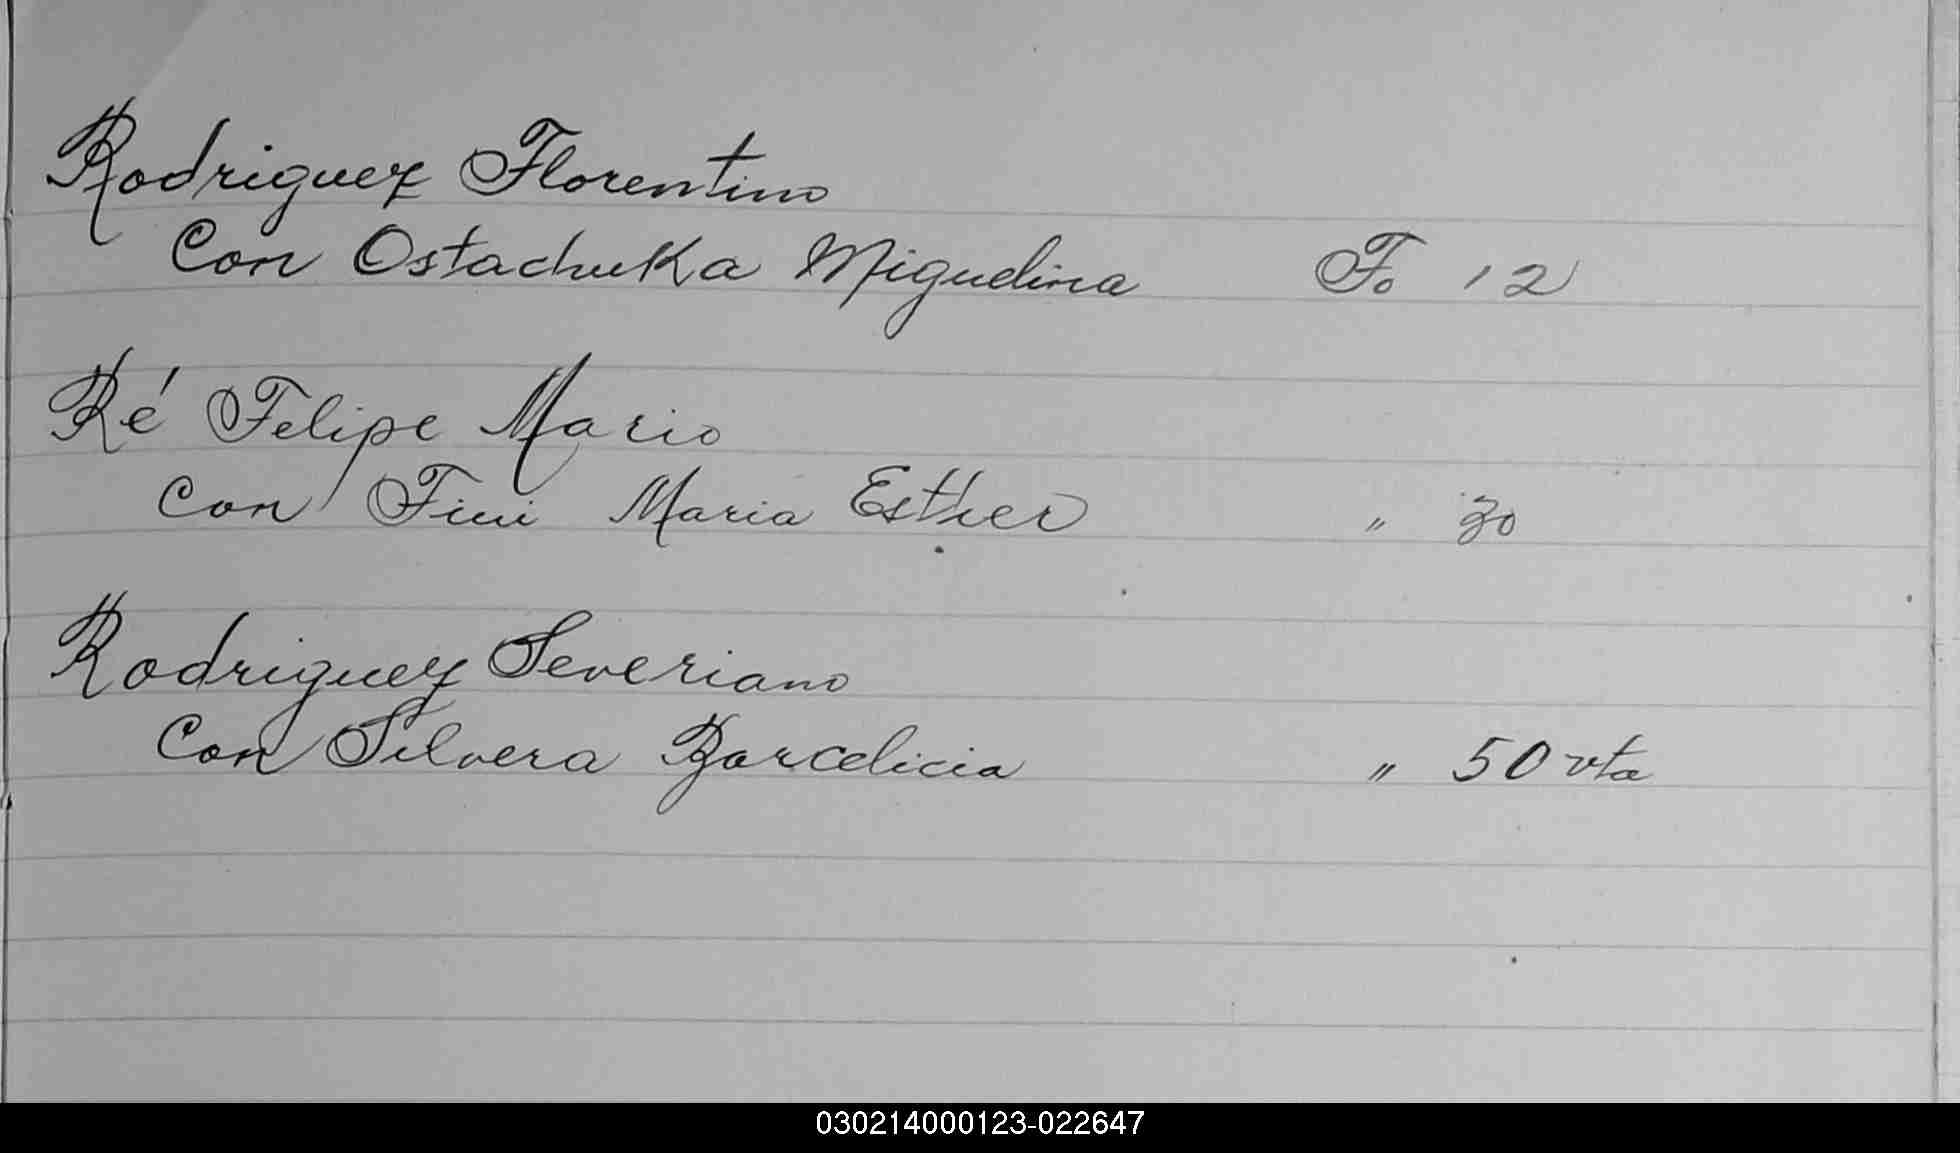 Rodriguez Florentino
Con Ostachuka Miguelina Fo 12
Ré Felipe Mario
Con Fini Maria Esther " 30
Rodriguez Severiano
Con Silvera Barcelicia " 50 vta
030214000123-022647